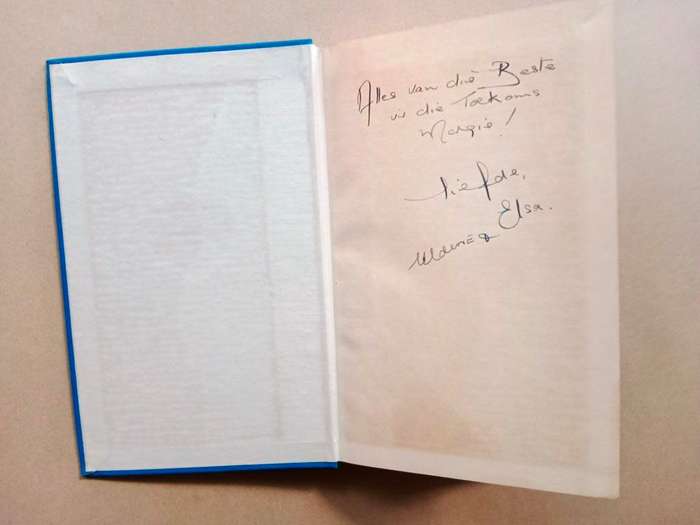 Alles van die Beste
vir die Toekoms
Margie!
liefde,
Elsa.